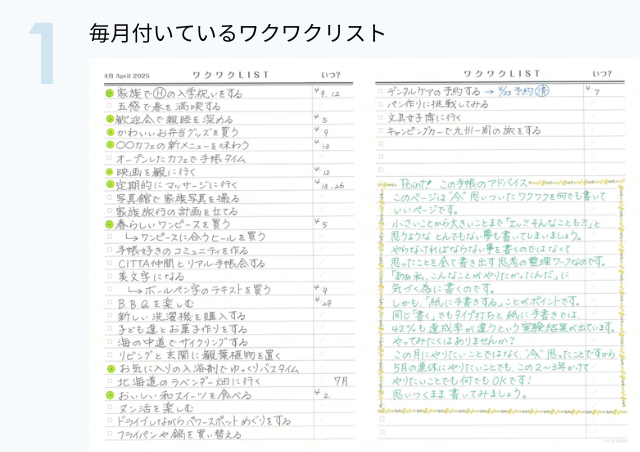 1
毎月付いているワクワクリスト
4月 April 2025 ワクワクLIST いつ?
家族でⒽの入学祝いをする 4/9, 12
五感で春を満喫する
歓迎会で親睦を深める 4/5
かわいいお弁当グッズを買う 4/9
〇〇カフェの新メニューを味わう 4/13
オープンしたカフェで手帳タイム
映画を観に行く 4/12
定期的にマッサージに行く 4/13, 26
写真館で家族写真を撮る
家族旅行の計画を立てる
春らしいワンピースを買う 4/5
↳ワンピースに合うヒールを買う
手帳好きのコミュニティを作る
CITTA仲間とリアル手帳会する
美文字になる
↳ボールペン字のテキストを買う 4/9
BBQを楽しむ 4/29
新しい洗濯機を購入する
子ども達とお菓子作りをする
海の中道でサイクリングする
リビングと玄関に観葉植物を置く
お気に入りの入浴剤でゆっくりバスタイム
北海道のラベンダー畑に行く 7月
おいしい和スイーツを食べる 4/2
ヌン活を楽しむ
ドライブしながらパワースポットめぐりをする
フライパンや鍋を買い替える
ワクワクLIST いつ?
デンタルケアの予約する → 4/23 予約済 4/7
パン作りに挑戦してみる
文具女子博に行く
キャンピングカーで九州一周の旅をする
Point! この手帳のアドバイス
このページは"今"思いついたワクワクを何でも書いて
いいページです。
小さいことから大きいことまで「エッ?そんなことも?」と
思うような とんでもない夢も書いてしまいましょう。
やらなければならない事を書くのではなくて
思ったことを全て書き出す思考の整理ワークなのです。
「あぁ私、こんなことがやりたかったんだ」に
気づく為に書くのです。
しかも、「紙に手書きする」ことがポイントです。
同じ"書く"でもタイプ打ちと紙に手書きでは
42%も達成率が違うという実験結果が出ています。
やってみたくはありませんか?
この月にやりたいことではなく、"今"思ったことですから
5月の連休にやりたいことでも、この2~3年かけて
やりたいことでも何でもOKです!
思いつくまま書いてみましょう。